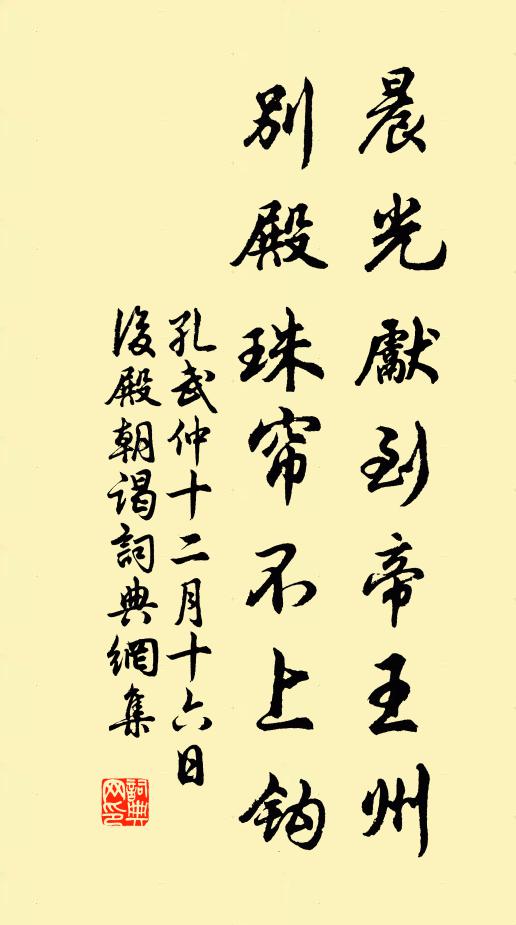 晨光獻到帝王州
別殿珠帘不上鈎
孔武仲十二月十六日
後殿朝谒詞典網集
詞典
网印